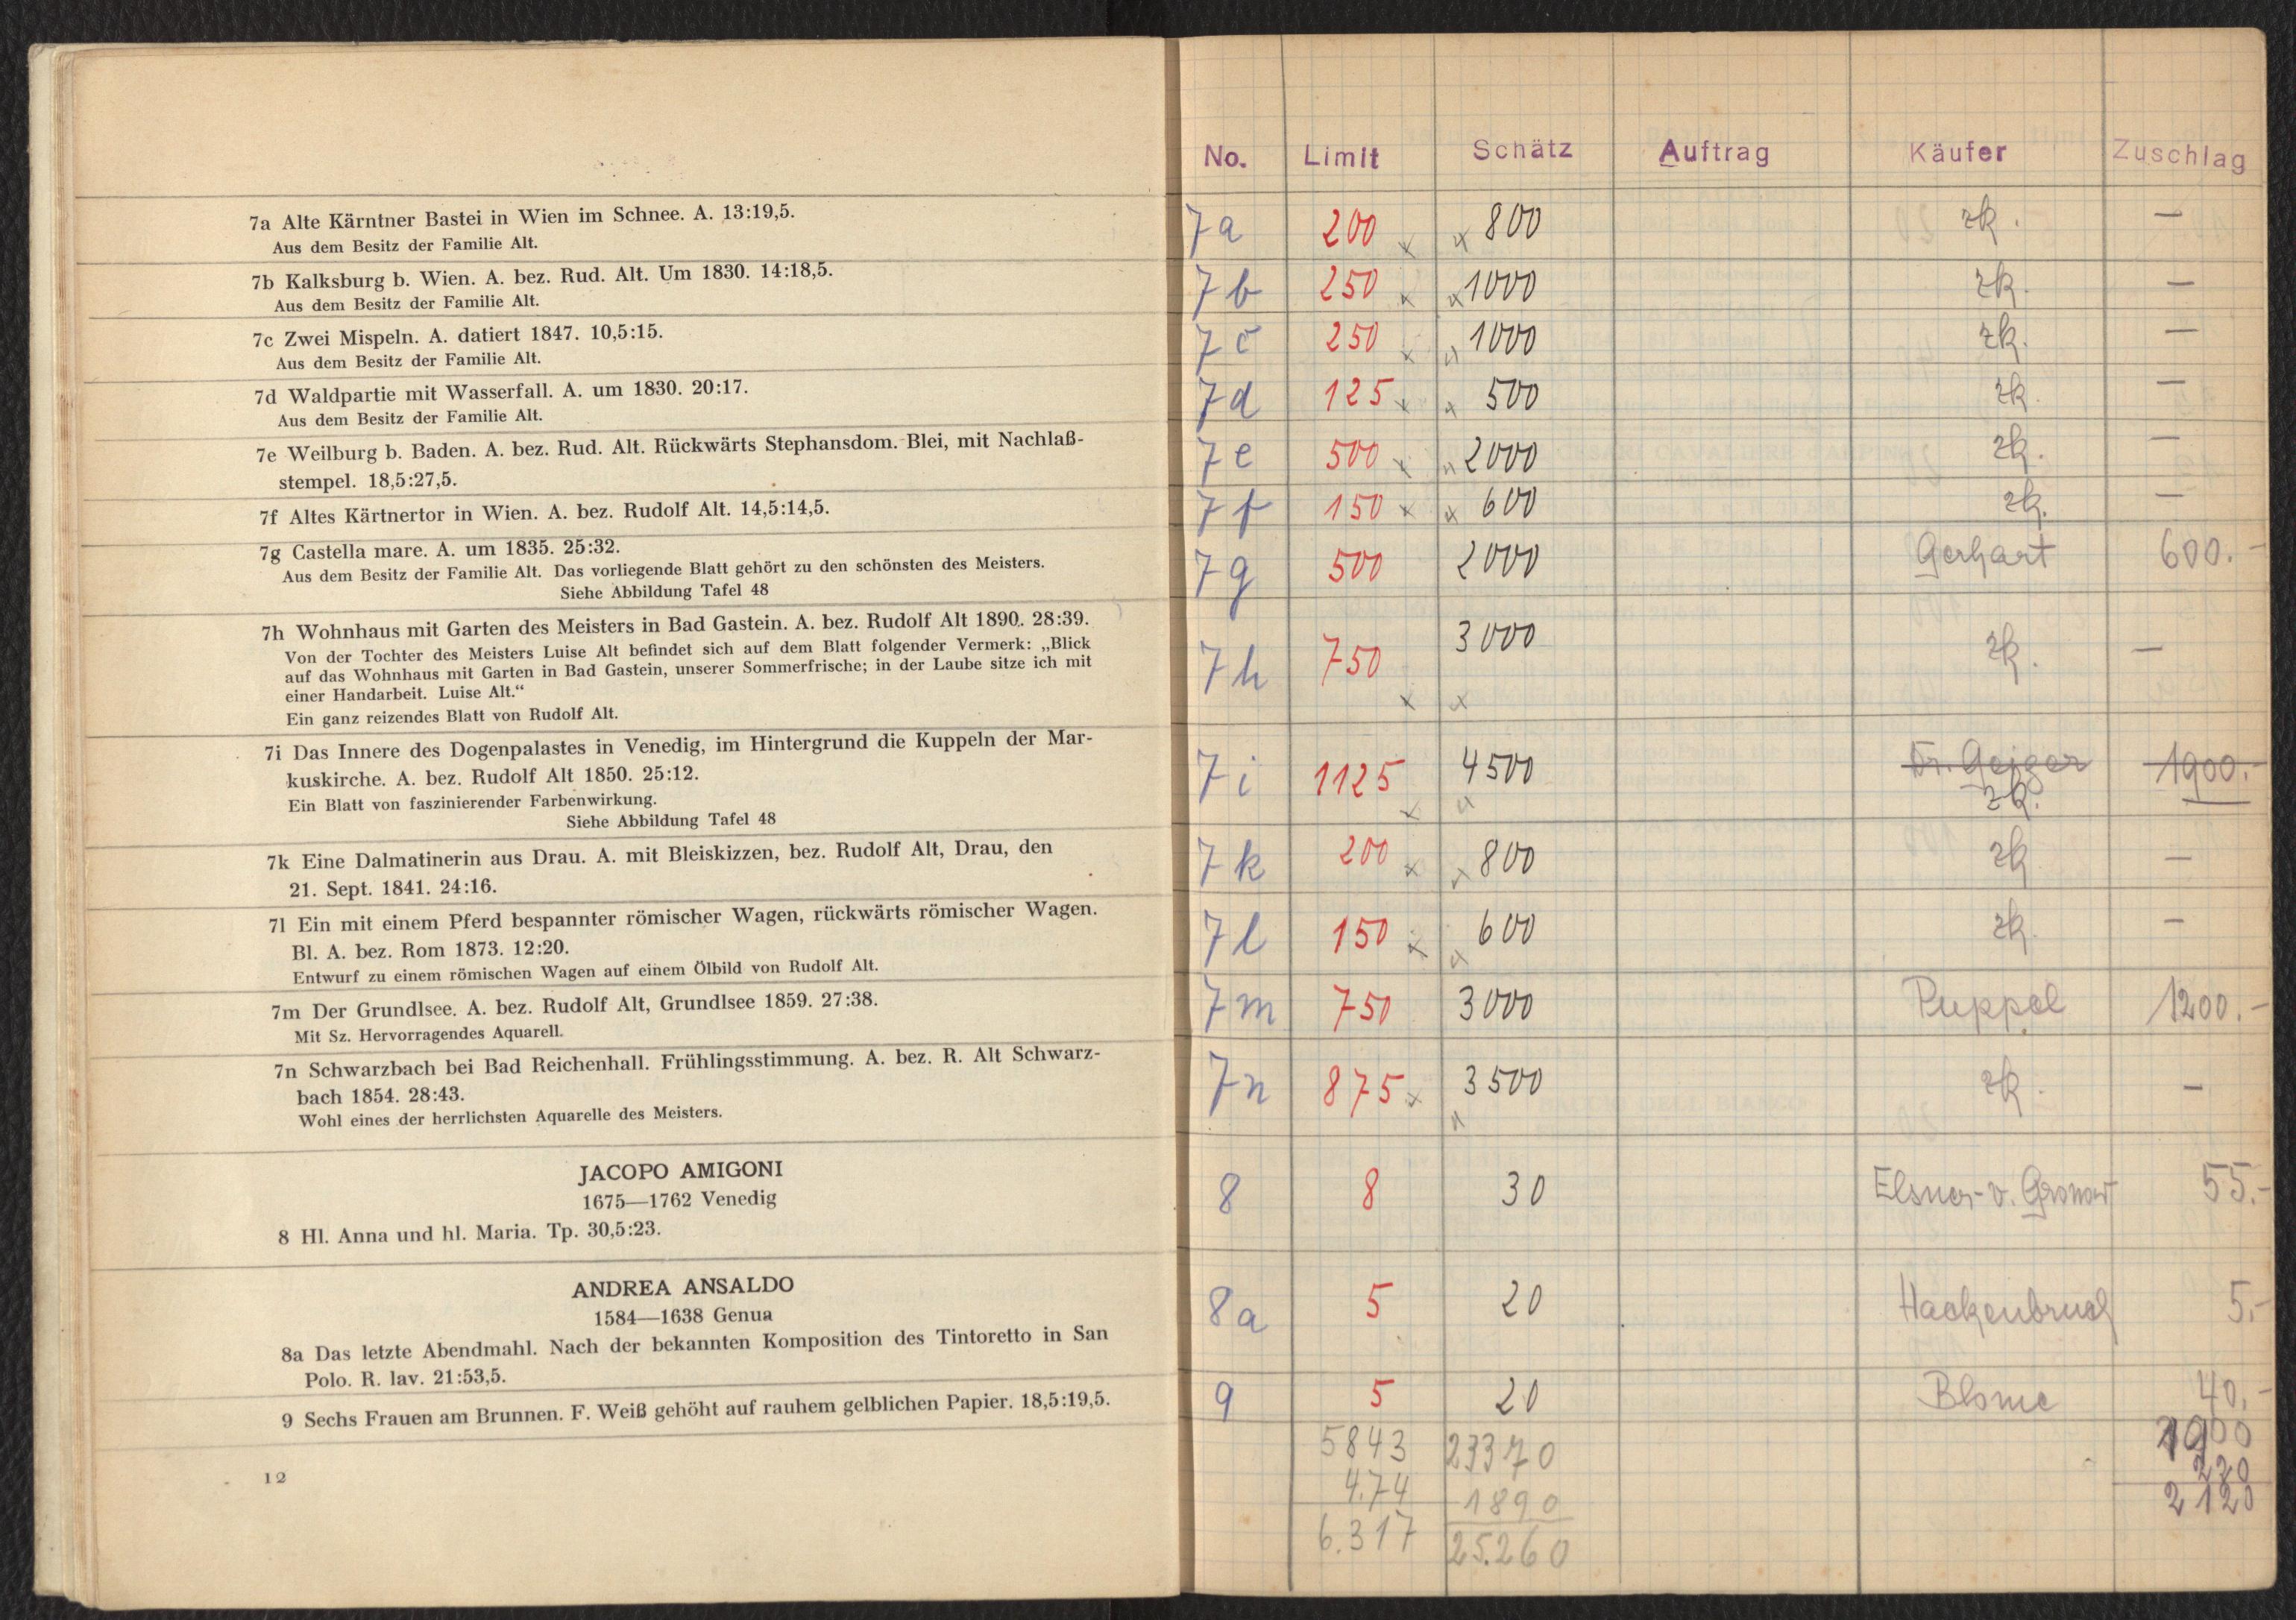 7a Alte Kärntner Bastei in Wien im Schnee. A. 13:19,5.
Aus dem Besitz der Familie Alt.
7b Kalksburg b. Wien. A. bez. Rud. Alt. Um 1830. 14:18,5.
Aus dem Besitz der Familie Alt.
7c Zwei Mispeln. A. datiert 1847. 10,5:15.
Aus dem Besitz der Familie Alt.
7d Waldpartie mit Wasserfall. A. um 1830. 20:17.
Aus dem Besitz der Familie Alt.
7e Weilburg b. Baden. A. bez. Rud. Alt. Rückwärts Stephansdom. Blei, mit Nachlaß-
stempel. 18,5:27,5.
7f Altes Kärtnertor in Wien. A. bez. Rudolf Alt. 14,5:14,5.
7g Castella mare. A. um 1835. 25:32.
Aus dem Besitz der Familie Alt. Das vorliegende Blatt gehört zu den schönsten des Meisters.
Siehe Abbildung Tafel 48
7h Wohnhaus mit Garten des Meisters in Bad Gastein. A. bez. Rudolf Alt 1890. 28:39.
Von der Tochter des Meisters Luise Alt befindet sich auf dem Blatt folgender Vermerk: „Blick
auf das Wohnhaus mit Garten in Bad Gastein, unserer Sommerfrische; in der Laube sitze ich mit
einer Handarbeit. Luise Alt.“
Ein ganz reizendes Blatt von Rudolf Alt.
7i Das Innere des Dogenpalastes in Venedig, im Hintergrund die Kuppeln der Mar-
kuskirche. A. bez. Rudolf Alt 1850. 25:12.
Ein Blatt von faszinierender Farbenwirkung.
Siehe Abbildung Tafel 48
7k Eine Dalmatinerin aus Drau. A. mit Bleiskizzen, bez. Rudolf Alt, Drau, den
21. Sept. 1841. 24:16.
7l Ein mit einem Pferd bespannter römischer Wagen, rückwärts römischer Wagen.
Bl. A. bez. Rom 1873. 12:20.
Entwurf zu einem römischen Wagen auf einem Ölbild von Rudolf Alt.
7m Der Grundlsee. A. bez. Rudolf Alt, Grundlsee 1859. 27:38.
Mit Sz. Hervorragendes Aquarell.
7n Schwarzbach bei Bad Reichenhall. Frühlingsstimmung. A. bez. R. Alt Schwarz-
bach 1854. 28:43.
Wohl eines der herrlichsten Aquarelle des Meisters.
JACOPO AMIGONI
1675—1762 Venedig
8 Hl. Anna und hl. Maria. Tp. 30,5:23.
ANDREA ANSALDO
1584—1638 Genua
8a Das letzte Abendmahl. Nach der bekannten Komposition des Tintoretto in San
Polo. R. lav. 21:53,5.
9 Sechs Frauen am Brunnen. F. Weiß gehöht auf rauhem gelblichen Papier. 18,5:19,5.
12
No. Limit Schätz Auftrag Käufer Zuschlag
7a 200 x x 800 zk. —
7b 250 x x 1000 zk. —
7c 250 x x 1000 zk. —
7d 125 x x 500 zk. —
7e 500 x x 2000 zk. —
7f 150 x x 600 zk. —
7g 500 2000 Gerhart 600.-
7h 750 x x 3000 zk. —
7i 1125 x x 4500 Dr. Geiger 1900.-
zk.
7k 200 x x 800 zk —
7l 150 x x 600 zk. —
7m 750 3000 Puppel 1200.-
7n 875 x x 3500 zk. —
8 8 30 Elsner-v. Gronow 55.-
8a 5 20 Hackenbruch 5.-
9 5 20 Blome 40.-
5843 23370 1900
4.74 1890 220
6.317 25.260 2120